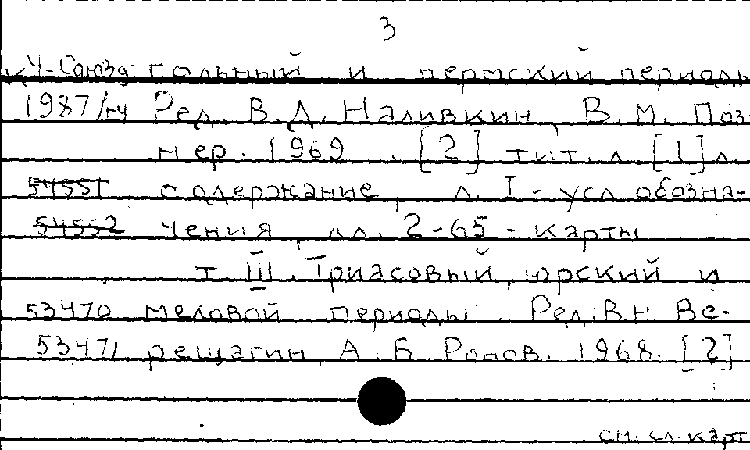 3
Ч-Союзд гольный и пермский периоды
1987/нч Ред. В.Д. Наливкин, В.М. Поз-
нер. 1969. [2] тит. л. [1] л.
54551 содержание, л. I - усл обозна-
54552 чения, лл. 2-65 - карты
т. III. Триасовый, юрский и
53470 меловой периоды. Ред. В.Н. Ве-
53471 рещагин, А.Б. Ронов. 1968. [2]
см. сл. карт